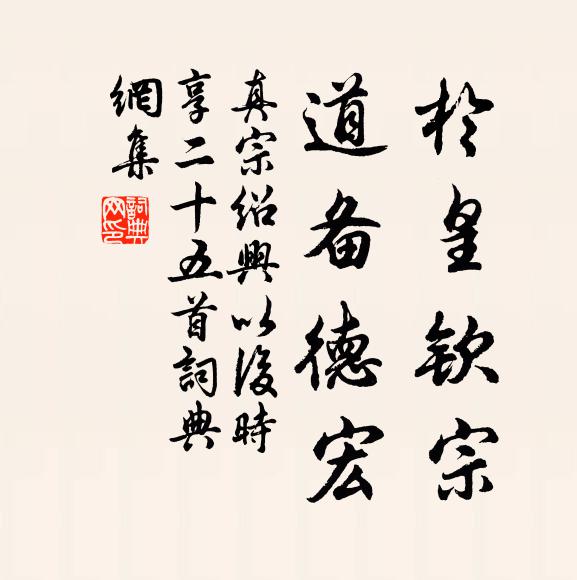 於皇欽宗
道备德宏
真宗紹興以後時
享二十五首詞典
網集
詞典
网印